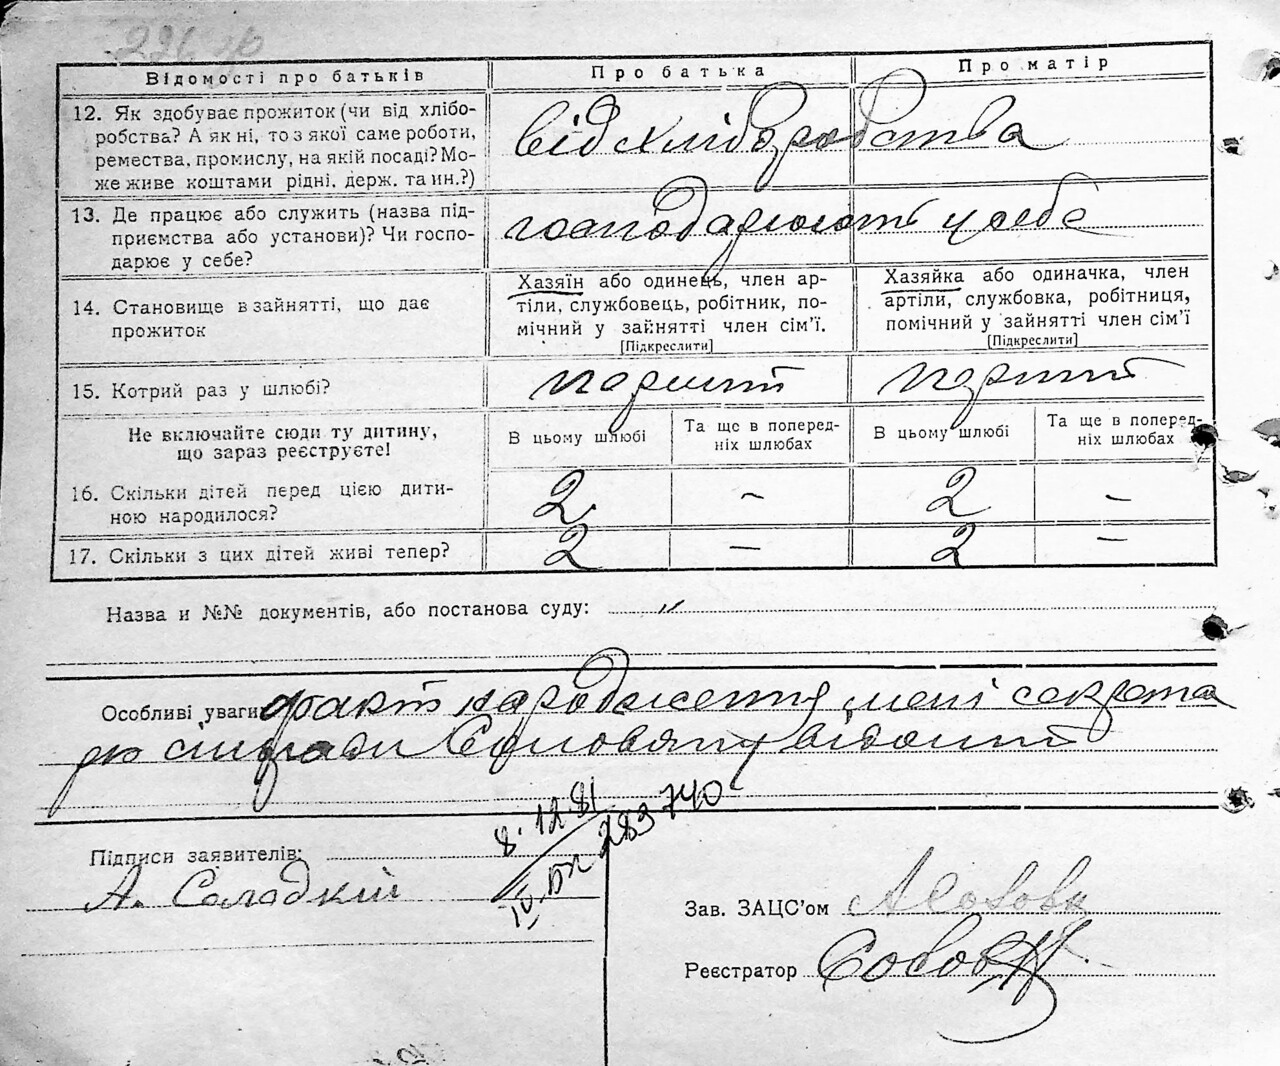 Відомості про батьків
Про батька
Про матір
12. Як здобуває прожиток (чи від хлібо-
робства? А як ні, то з якої саме роботи,
ремества, промислу, на якій посаді? Мо-
же живе коштами рідні, держ. та ин.?)
від хліборобства
13. Де працює або служить (назва під-
приємства або установи)? Чи госпо-
дарює у себе?
господарюють у себе
14. Становище в зайнятті, що дає
прожиток
Хазяїн або одинець, член ар-
тіли, службовець, робітник, по-
мічний у зайнятті член сім'ї.
[Підкреслити]
Хазяйка або одиначка, член
артіли, службовка, робітниця,
помічний у зайнятті член сім'ї
[Підкреслити]
15. Котрий раз у шлюбі?
перший
перший
Не включайте сюди ту дитину,
що зараз реєструєте!
В цьому шлюбі
Та ще в поперед-
ніх шлюбах
В цьому шлюбі
Та ще в поперед-
ніх шлюбах
16. Скільки дітей перед цією дити-
ною народилося?
2 – 2 –
17. Скільки з цих дітей живі тепер?
2 – 2 –
Назва и №№ документів, або постанова суду: "
Особливі уваги факт народження мені секрета
рю сільради відомий
8.12.81
283740
Підписи заявителів:
А. Сладкий
Зав. ЗАЦС'ом
Реєстратор